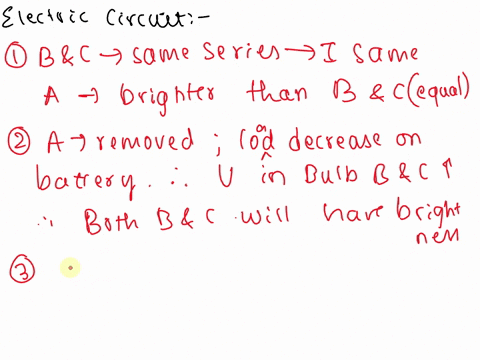 Electric Circuit:-
① B & C → same series → I same
A → brighter than B & C (equal)
② A → removed ; load decrease on
battery. ∴ U in Bulb B & C ↑
∴ Both B & C will have bright
ness
③